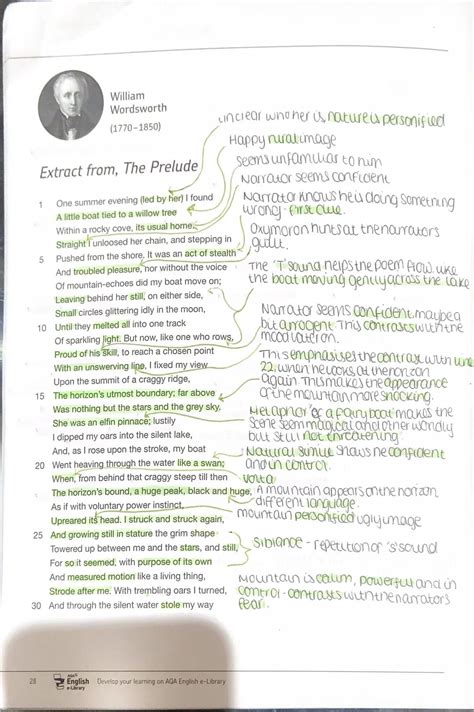 William
Wordsworth
(1770–1850)
Extract from, The Prelude
unclear who her is nature is personified
Happy rural image
Seems unfamiliar to him
Narrator seems confident
Narrator knows he is doing something
wrong - first clue.
Oxymoron hints at the narrators
guilt.
The 'l' sound helps the poem flow like
the boat moving gently across the lake
Narrator seems confident maybe a
bit arrogent. This contrasts with the
mood later on.
This emphasises the contrast with line
22, when he looks at the horizon
again. This makes the appearance
of the mountain more shocking.
Metaphor of a fairy boat makes the
scene seem magical and other worldly
but still not threatening.
Natural simile shows he confident
and in control.
volta
A mountain appears on the horizon
different language.
mountain personified ugly image
sibilance - repetition of 's' sound
Mountain is calm, powerful and in
control - contrasts with the narrators
fear.
1 One summer evening (led by her) I found
A little boat tied to a willow tree
Within a rocky cove, its usual home.
Straight I unloosed her chain, and stepping in
5 Pushed from the shore. It was an act of stealth
And troubled pleasure, nor without the voice
Of mountain-echoes did my boat move on;
Leaving behind her still, on either side,
Small circles glittering idly in the moon,
10 Until they melted all into one track
Of sparkling light. But now, like one who rows,
Proud of his skill, to reach a chosen point
With an unswerving line, I fixed my view
Upon the summit of a craggy ridge,
15 The horizon's utmost boundary; far above
Was nothing but the stars and the grey sky.
She was an elfin pinnace; lustily
I dipped my oars into the silent lake,
And, as I rose upon the stroke, my boat
20 Went heaving through the water like a swan;
When, from behind that craggy steep till then
The horizon's bound, a huge peak, black and huge,
As if with voluntary power instinct,
Upreared its head. I struck and struck again,
25 And growing still in stature the grim shape
Towered up between me and the stars, and still,
For so it seemed, with purpose of its own
And measured motion like a living thing,
Strode after me. With trembling oars I turned,
30 And through the silent water stole my way
28
AQA
English
e-Library
Develop your learning on AQA English e-Library